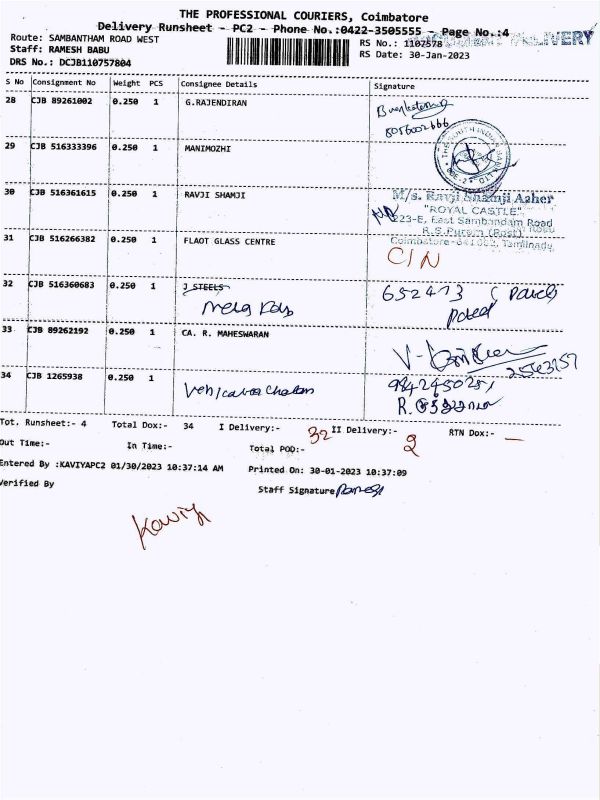 THE PROFESSIONAL COURIERS, Coimbatore
Delivery Runsheet - PC2 - Phone No.:0422-3505555 - Page No.:4
Route: SAMBANTHAM ROAD WEST
RS No.: 1107578
DELIVERY
Staff: RAMESH BABU
RS Date: 30-Jan-2023
DRS No.: DCJB110757804
S No Consignment No Weight PCS Consignee Details Signature
28 CJB 89261002 0.250 1 G.RAJENDIRAN
8056002666
29 CJB 516333396 0.250 1 MANIMOZHI
THE SOUTH INDIAN BANK LTD
30 CJB 516361615 0.250 1 RAVJI SHAMJI
M/s. Ravji Shamji Asher
"ROYAL CASTLE"
323-E, East Sambandam Road
R.S.Puram (Post)
Coimbatore-641002, Tamilnadu
31 CJB 516266382 0.250 1 FLAOT GLASS CENTRE
C/N
32 CJB 516360683 0.250 1 J STEELS
652473
33 CJB 89262192 0.250 1 CA. R. MAHESWARAN
2543157
34 CJB 1265938 0.250 1
R.
Tot. Runsheet:- 4 Total Dox:- 34 I Delivery:- 32 II Delivery:- 2 RTN Dox:- —
Out Time:- In Time:- Total POD:-
Entered By :KAVIYAPC2 01/30/2023 10:37:14 AM Printed On: 30-01-2023 10:37:09
Verified By Staff Signature Ramesh
Kaviya